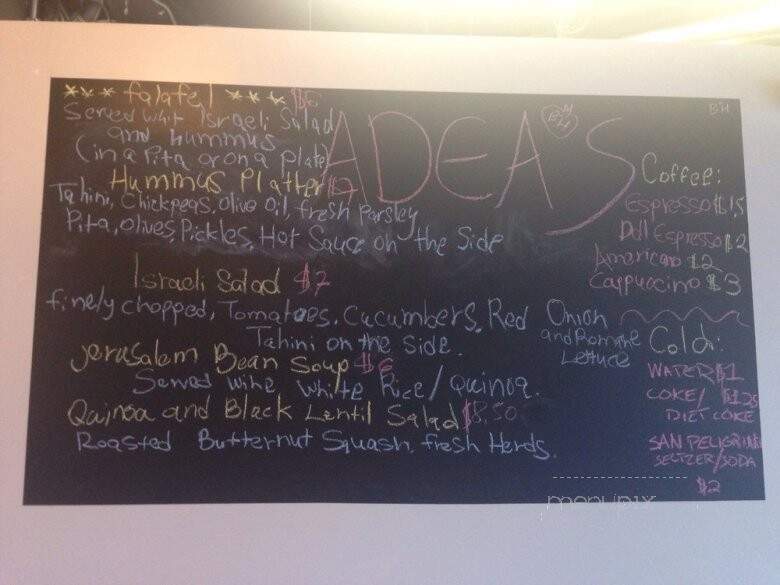 *** falafel *** $6
Served whit Israeli Salad
and hummus
(in a Pita or on a plate
Hummus Platter
Tahini, Chickpeas, olive oil, fresh Parsley
Pita, olives, Pickles, Hot Sauce on the Side
Israeli Salad $7
finely chopped, Tomatoes, Cucumbers, Red Onion
and Romane
Lettuce
Tahini on the side.
Jerusalem Bean Soup $6
Served wihe white Rice/Quinoa.
Quinoa and Black Lentil Salad $8.50
Roasted Butternut Squash, fresh Herds.
ADEA'S
BH
BH
Coffee:
Espresso $1.5
Dbll Espresso $2
Americano $2
Cappuccino $3
Cold:
WATER $1
COKE/ $1.25
DIET COKE
SAN PELIGRINO
SELTZER/SODA
$2
menupix